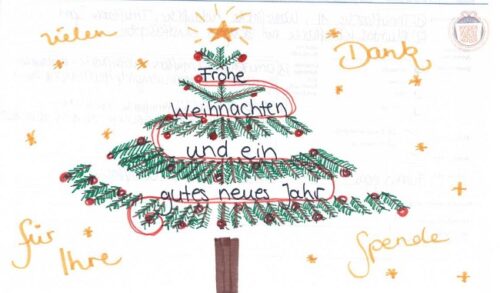 vielen Dank
Frohe
Weihnachten
und ein
gutes neues Jahr
für Ihre Spende